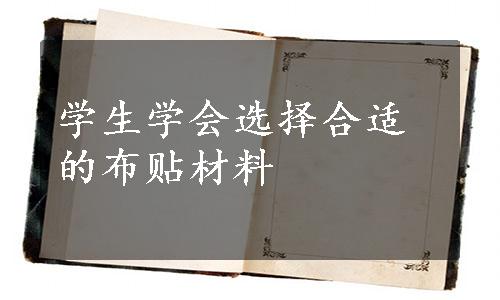 学生学会选择合适
的布贴材料